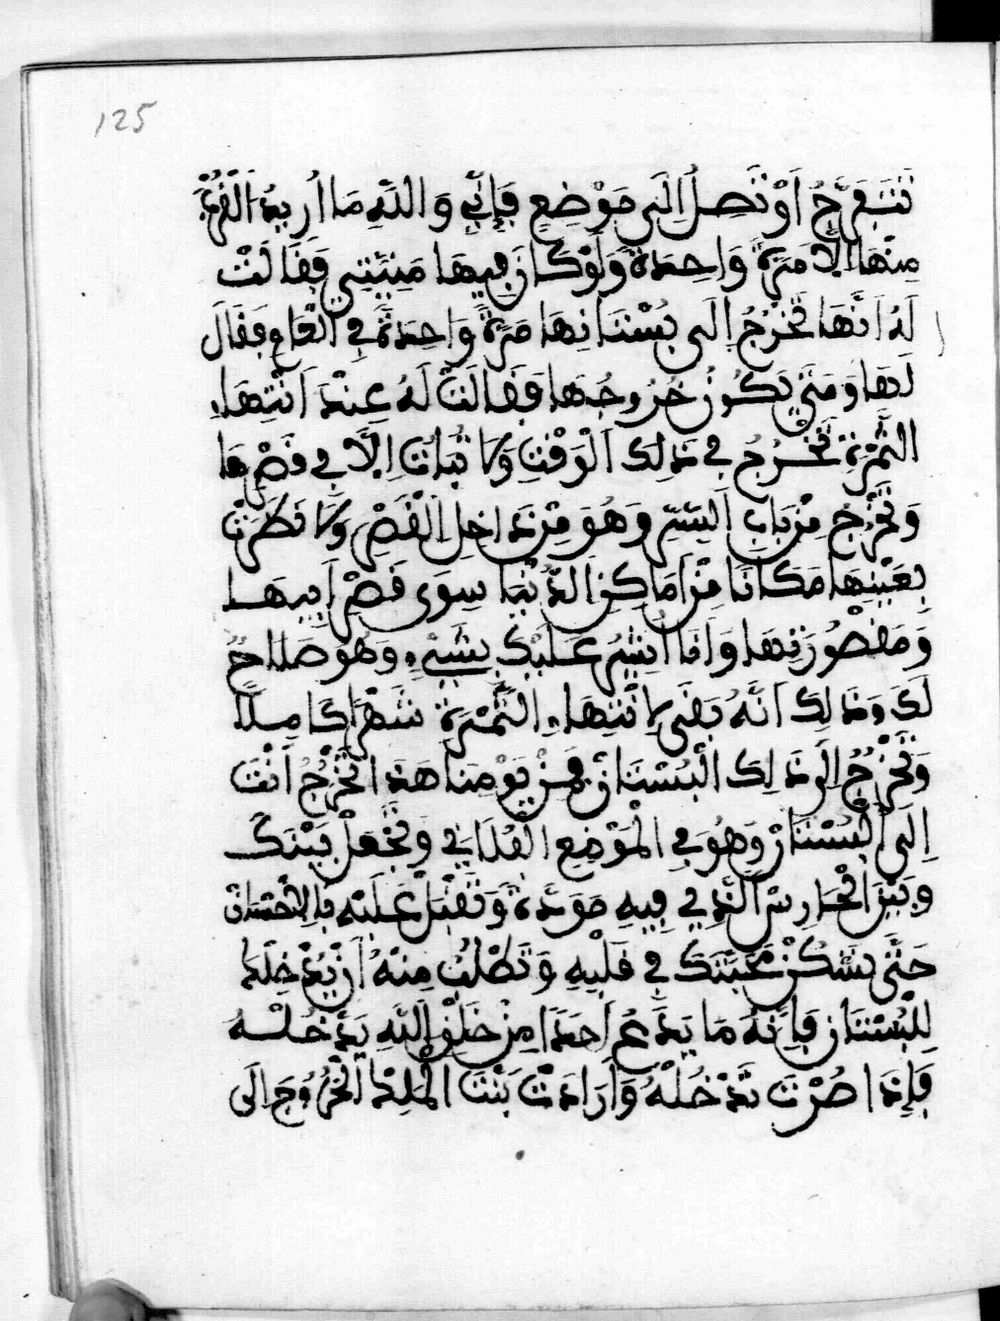 125
تَتَفَرَّجُ اَوْ تَصِلُ اِلَى مَوْضِعٍ فَإِنِّي وَاللَّهِ مَا اُرِيدُ
مِنْهَا اِلَّا مَرَّةً وَاحِدَةً وَلَوْ كَانَ فِيهَا مَنِيَّتِي فَقَالَتْ
لَهُ اَنَّهَا تَخْرُجُ اِلَى بُسْتَانِهَا مَرَّةً وَاحِدَةً فِي الْعَامِ فَقَالَ
لَهَا وَمَتَى يَكُونُ خُرُوجُهَا فَقَالَتْ لَهُ عِنْدَ انْتِهَاءِ
الثَّمْرَةِ تَخْرُجُ فِي ذَلِكَ الْوَقْتِ وَلَا تُبَاتْ اِلَّا فِي قَصْرِهَا
وَتَخْرُجُ مِنْ بَابِ السِّرِّ وَهُوَ مِنْ دَاخِلِ الْقَصْرِ وَلَا نَظَرَتْ
بِعَيْنِهَا مَكَانًا مِنْ اَمَاكِنِ الدُّنْيَا سِوَى قَصْرِ اَبِيهَا
وَمَقْصُورَتِهَا وَاَنَا اُشِيرُ عَلَيْكَ بِشَيْءٍ وَهُوَ صَلَاحٌ
لَكَ وَذَلِكَ اَنَّهُ بَقَى لِانْتِهَاءِ الثَّمْرَةِ شَهْرًا كَامِلًا
وَتَخْرُجُ اِلَى ذَلِكَ الْبُسْتَانِ فَمِنْ يَوْمِنَا هَذَا تَخْرُجُ اَنْتَ
اِلَى الْبُسْتَانِ وَهُوَ فِي الْمَوْضِعِ الْفُلَانِي وَتَجْعَلْ بَيْنَكَ
وَبَيْنَ الْحَارِسْ الَّذِي فِيهِ مَوَدَّةً وَتُقْبِلْ عَلَيْهِ بِالْاِحْسَانِ
حَتَّى تَسْكُنْ مَحَبَّتُكَ فِي قَلْبِهِ وَتَطْلُبُ مِنْهُ اَنْ يُدْخِلَكَ
لِلْبُسْتَانِ فَإِنَّهُ مَا يَدَعُ اَحَدًا مِنْ خَلْقِ اللَّهِ يَدْخُلُهُ
فَإِذَا صُرْتَ تَدْخُلُهُ وَاَرَادَتْ بَنْتَ الْمَلِكْ الْخُرُوجَ اِلَى